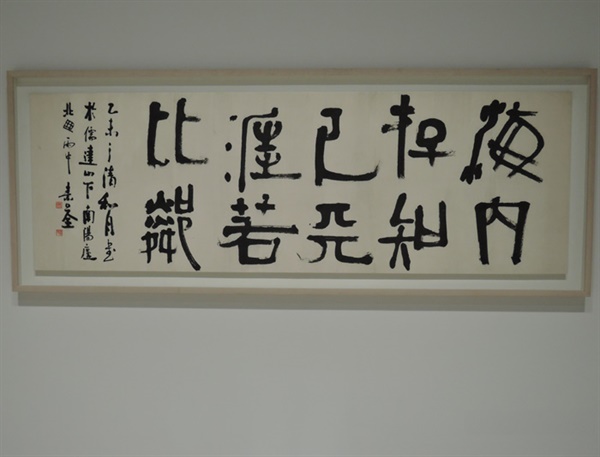 海内
存知
己天
涯若
比鄰
乙未之清和月
於儒達山下南陽
雨中